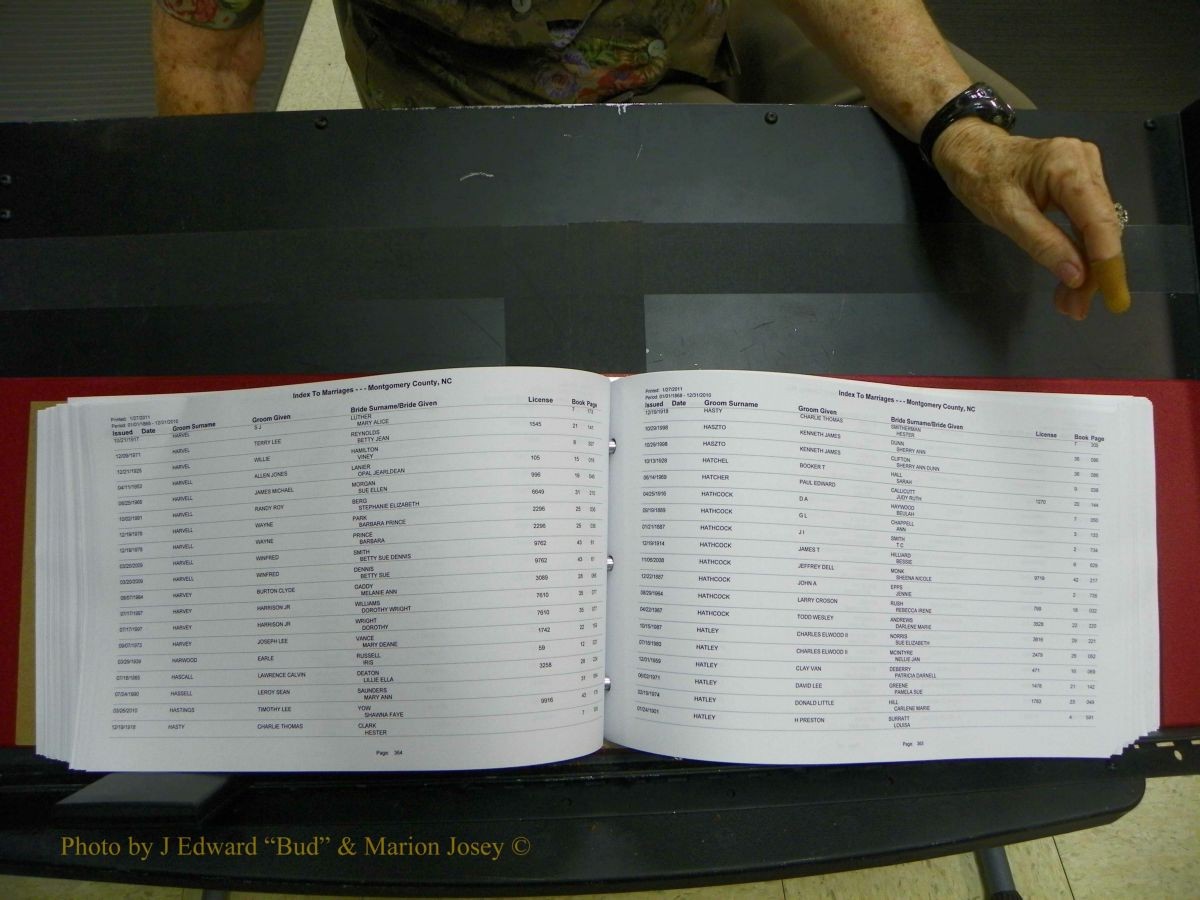 Index To Marriages - - - Montgomery County, NC
Printed: 1/27/2011
Period: 01/01/1868 - 12/31/2010
Issued Date Groom Surname Groom Given Bride Surname/Bride Given License Book Page
10/21/1917 HARVEL S J LUTHER 7 173
MARY ALICE
12/09/1971 HARVEL TERRY LEE REYNOLDS 1545 21 141
BETTY JEAN
12/21/1925 HARVEL WILLIE HAMILTON 9
VINEY
04/11/1953 HARVELL ALLEN JONES LANIER 105 15 019
OPAL JEARLDEAN
06/25/1965 HARVELL JAMES MICHAEL MORGAN 996 19
SUE ELLEN
10/02/1991 HARVELL RANDY ROY BERG 6649 31 210
STEPHANIE ELIZABETH
12/19/1978 HARVELL WAYNE PARK 2296 25 036
BARBARA PRINCE
12/19/1978 HARVELL WAYNE PRINCE 2296 25 036
BARBARA
03/20/2009 HARVELL WINFRED SMITH 9762 43 61
BETTY SUE DENNIS
03/20/2009 HARVELL WINFRED DENNIS 9762 43 61
BETTY SUE
09/07/1984 HARVEY BURTON CLYDE GADDY 3089 28
MELANIE ANN
07/17/1997 HARVEY HARRISON JR WILLIAMS 7610 35 077
DOROTHY WRIGHT
07/17/1997 HARVEY HARRISON JR WRIGHT 7610 35 077
DOROTHY
09/07/1973 HARVEY JOSEPH LEE VANCE 1742 22
MARY DEANE
03/29/1939 HARWOOD EARLE RUSSELL 59 12
IRIS
07/18/1985 HASCALL LAWRENCE CALVIN DEATON 3258 28
LILLIE ELLA
07/24/1990 HASSELL LEROY SEAN SAUNDERS 31
MARY ANN
03/25/2010 HASTINGS TIMOTHY LEE YOW 9916 43
SHAWNA FAYE
12/19/1918 HASTY CHARLIE THOMAS CLARK 7
HESTER
Page: 364
Index To Marriages - - - Montgomery County, NC
Printed: 1/27/2011
Period: 01/01/1868 - 12/31/2010
Issued Date Groom Surname Groom Given Bride Surname/Bride Given License Book Page
12/19/1918 HASTY CHARLIE THOMAS SMITHERMAN 7
HESTER
10/29/1998 HASZTO KENNETH JAMES DUNN 36 086
SHERRY ANN
10/29/1998 HASZTO KENNETH JAMES CLIFTON 36 086
SHERRY ANN DUNN
10/13/1928 HATCHEL BOOKER T HALL 9
SARAH
06/14/1969 HATCHER PAUL EDWARD CALLICUTT 1270 20 144
JUDY RUTH
04/25/1916 HATHCOCK D A HAYWOOD 7
BEULAH
09/19/1889 HATHCOCK G L CHAPPELL 3 133
ANN
01/21/1887 HATHCOCK J I SMITH 2 734
T C
12/19/1914 HATHCOCK JAMES T HILLIARD 6 629
BESSIE
11/06/2008 HATHCOCK JEFFREY DELL MONK 9719 42 217
SHEENA NICOLE
12/22/1887 HATHCOCK JOHN A EPPS 2
JENNIE
08/29/1964 HATHCOCK LARRY CROSON RUSH 799 18 032
REBECCA IRENE
04/22/1987 HATHCOCK TODD WESLEY ANDREWS 3528 22 220
DARLENE MARIE
10/15/1987 HATLEY CHARLES ELWOOD II NORRIS 3616 29 221
SUE ELIZABETH
07/15/1980 HATLEY CHARLES ELWOOD II MCINTYRE 2479 26 052
NELLIE JAN
12/31/1959 HATLEY CLAY VAN DEBERRY 471 16 069
PATRICIA DARNELL
06/02/1971 HATLEY DAVID LEE GREENE 1478 21 142
PAMELA SUE
02/19/1974 HATLEY DONALD LITTLE HILL 1783 23 049
CARLENE MARIE
01/24/1901 HATLEY H PRESTON SURRATT 4 591
LOUISA
Page: 365
Photo by J Edward “Bud” & Marion Josey ©